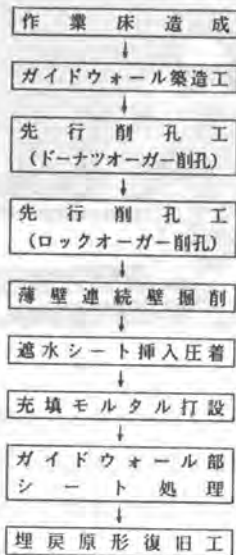 作業床造成
ガイドウォール築造工
先行削孔工
(ドーナツオーガー削孔)
先行削孔工
(ロックオーガー削孔)
薄壁連続壁掘削
遮水シート挿入圧着
充填モルタル打設
ガイドウォール部
シート処理
埋戻原形復旧工